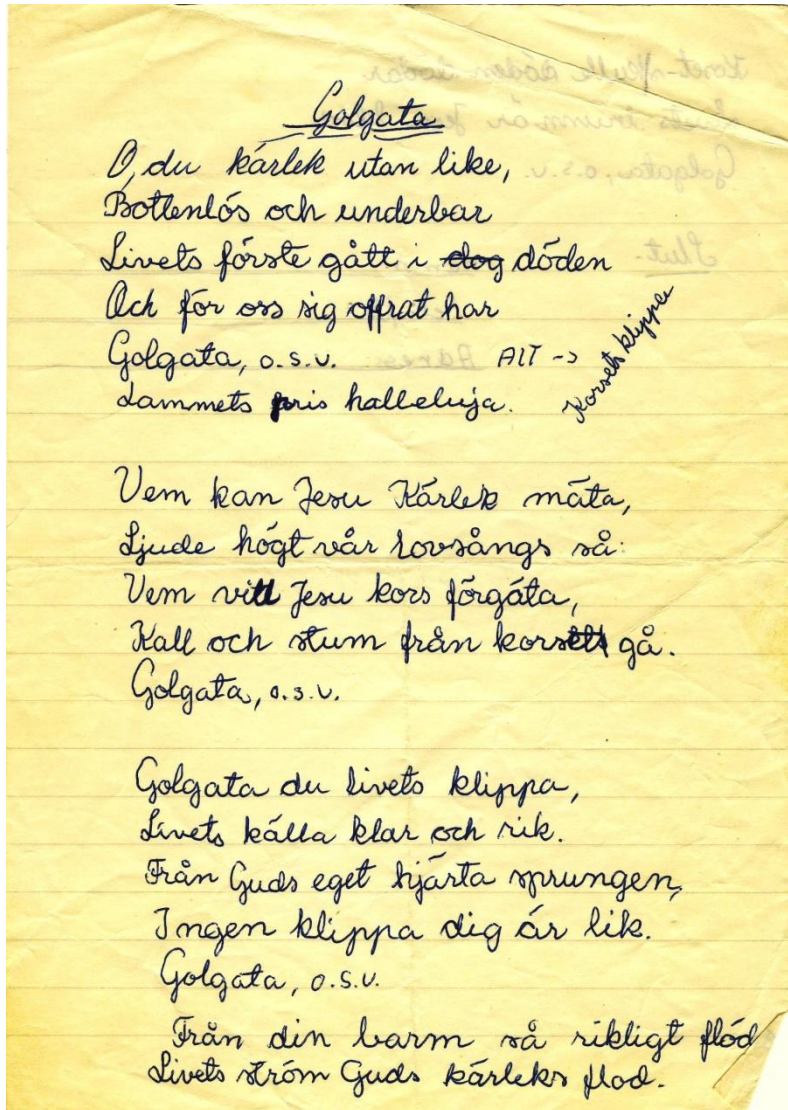 Golgata
O, du kärlek utan like,
Bottenlös och underbar
Livets förste gått i dog döden
Och för oss sig offrat har
Golgata, o.s.v. Alt -> Korsets klippa
Lammets pris halleluja.
Vem kan Jesu Kärlek mäta,
Ljude högt vår Lovsångs så:
Vem vill Jesu kors förgäta,
Kall och stum från korset gå.
Golgata, o.s.v.
Golgata du livets klippa,
Livets källa klar och rik.
Från Guds eget hjärta sprungen,
Ingen klippa dig är lik.
Golgata, o.s.v.
Från din barm så rikligt flöd
Livets ström Guds kärleks flod.
Korset-skulle döden
Golgata, o.s.v.
Slut-